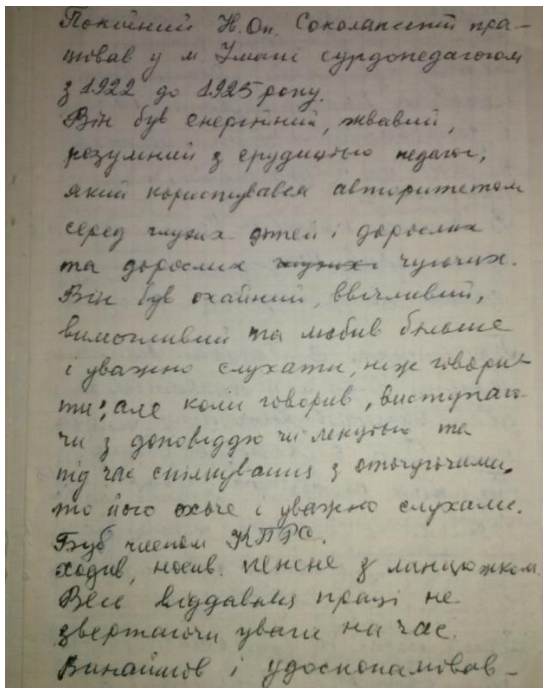 Покійний Н. Оп. Соколянский пра-
цював у м Умані сурдопедагогом
з 1922 до 1925 року.
Він був енергійний, жвавий,
розумний з ерудицією педагог,
який користувався авторитетом
серед глухих дітей і дорослих
та дорослих чуючих.
Він був охайний, ввічливий,
вимогливий та любив більше
і уважно слухати, ніж говори-
ти; але коли говорив, виступаю-
чи з доповіддю чи лекцією та
під час спілкування з оточуючими,
то його охоче і уважно слухали.
Був членом КПРС.
Ходив, носив пенсне з ланцюжком.
Весь віддавався праці не
звертаючи уваги на час.
Винайшов і удосконалював-